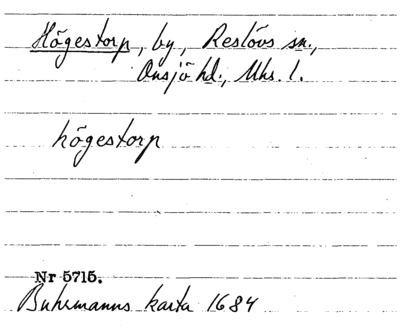 Högestorp, by, Reslövs sn.,
Onsjö hd., Mhs. l.
högestorp
Nr 5715.
Buhrmanns karta 1684